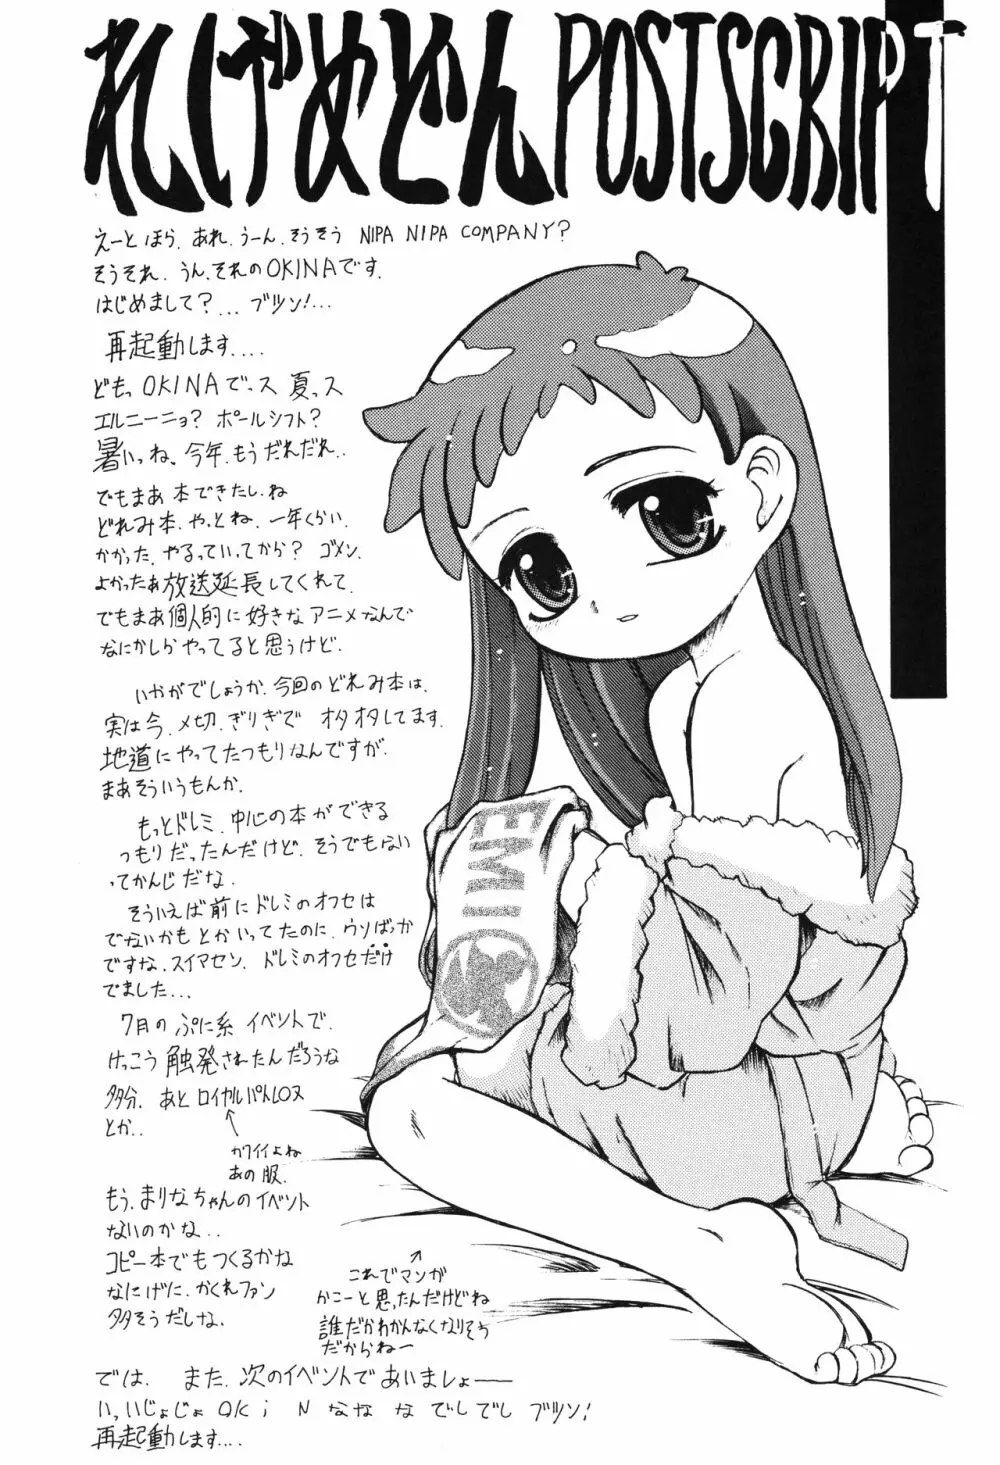 れしげめどん POSTSCRIPT
えーと ほら、あれ、うーん、そうそう NIPA NIPA COMPANY?
そうそれ、うん、それのOKINAです。
はじめまして?...ブツン!...
再起動します....
どもっOKINAでっス 夏っス
エルニーニョ? ポールシフト?
暑いっね、今年、もうだれだれ..
でもまあ本できたしね
どれみ本、やっとね、一年くらい、
かかった、やるっていってから? ゴメン、
よかったあ放送延長してくれて、
でもまあ個人的に好きなアニメなんで
なにかしらやってると思うけど、
いかがでしょうか、今回のどれみ本は、
実は今、〆切、ぎりぎで オタオタしてます、
地道にやってたつもりなんですが、
まあそういうもんか、
もっとドレミ、中心の本ができる
つもりだったんだけど、そうでもない
ってかんじだな、
そういえば前にドレミのオフセは
でないかもとかいってたのに、ウソばっか
ですな、スイマセン、ドレミのオフセだけ
でました...
7月のぷに系イベントで、
けっこう触発されたんだろうな
多分、あとロイヤルパトレーヌ
とか..
カワイイよね
あの服、
もう、まりなちゃんのイベント
ないのかな、..
コピー本でもつくるかな
なにげに、かくれファン
多そうだしな、
これでマンガ
かこーと思ったんだけどね
誰だかわかんなくなりそう
だからねー
では、また、次のイベントであいましょー
いっいじょじょ OKiNななな でしでし ブツン!
再起動します....
EMI